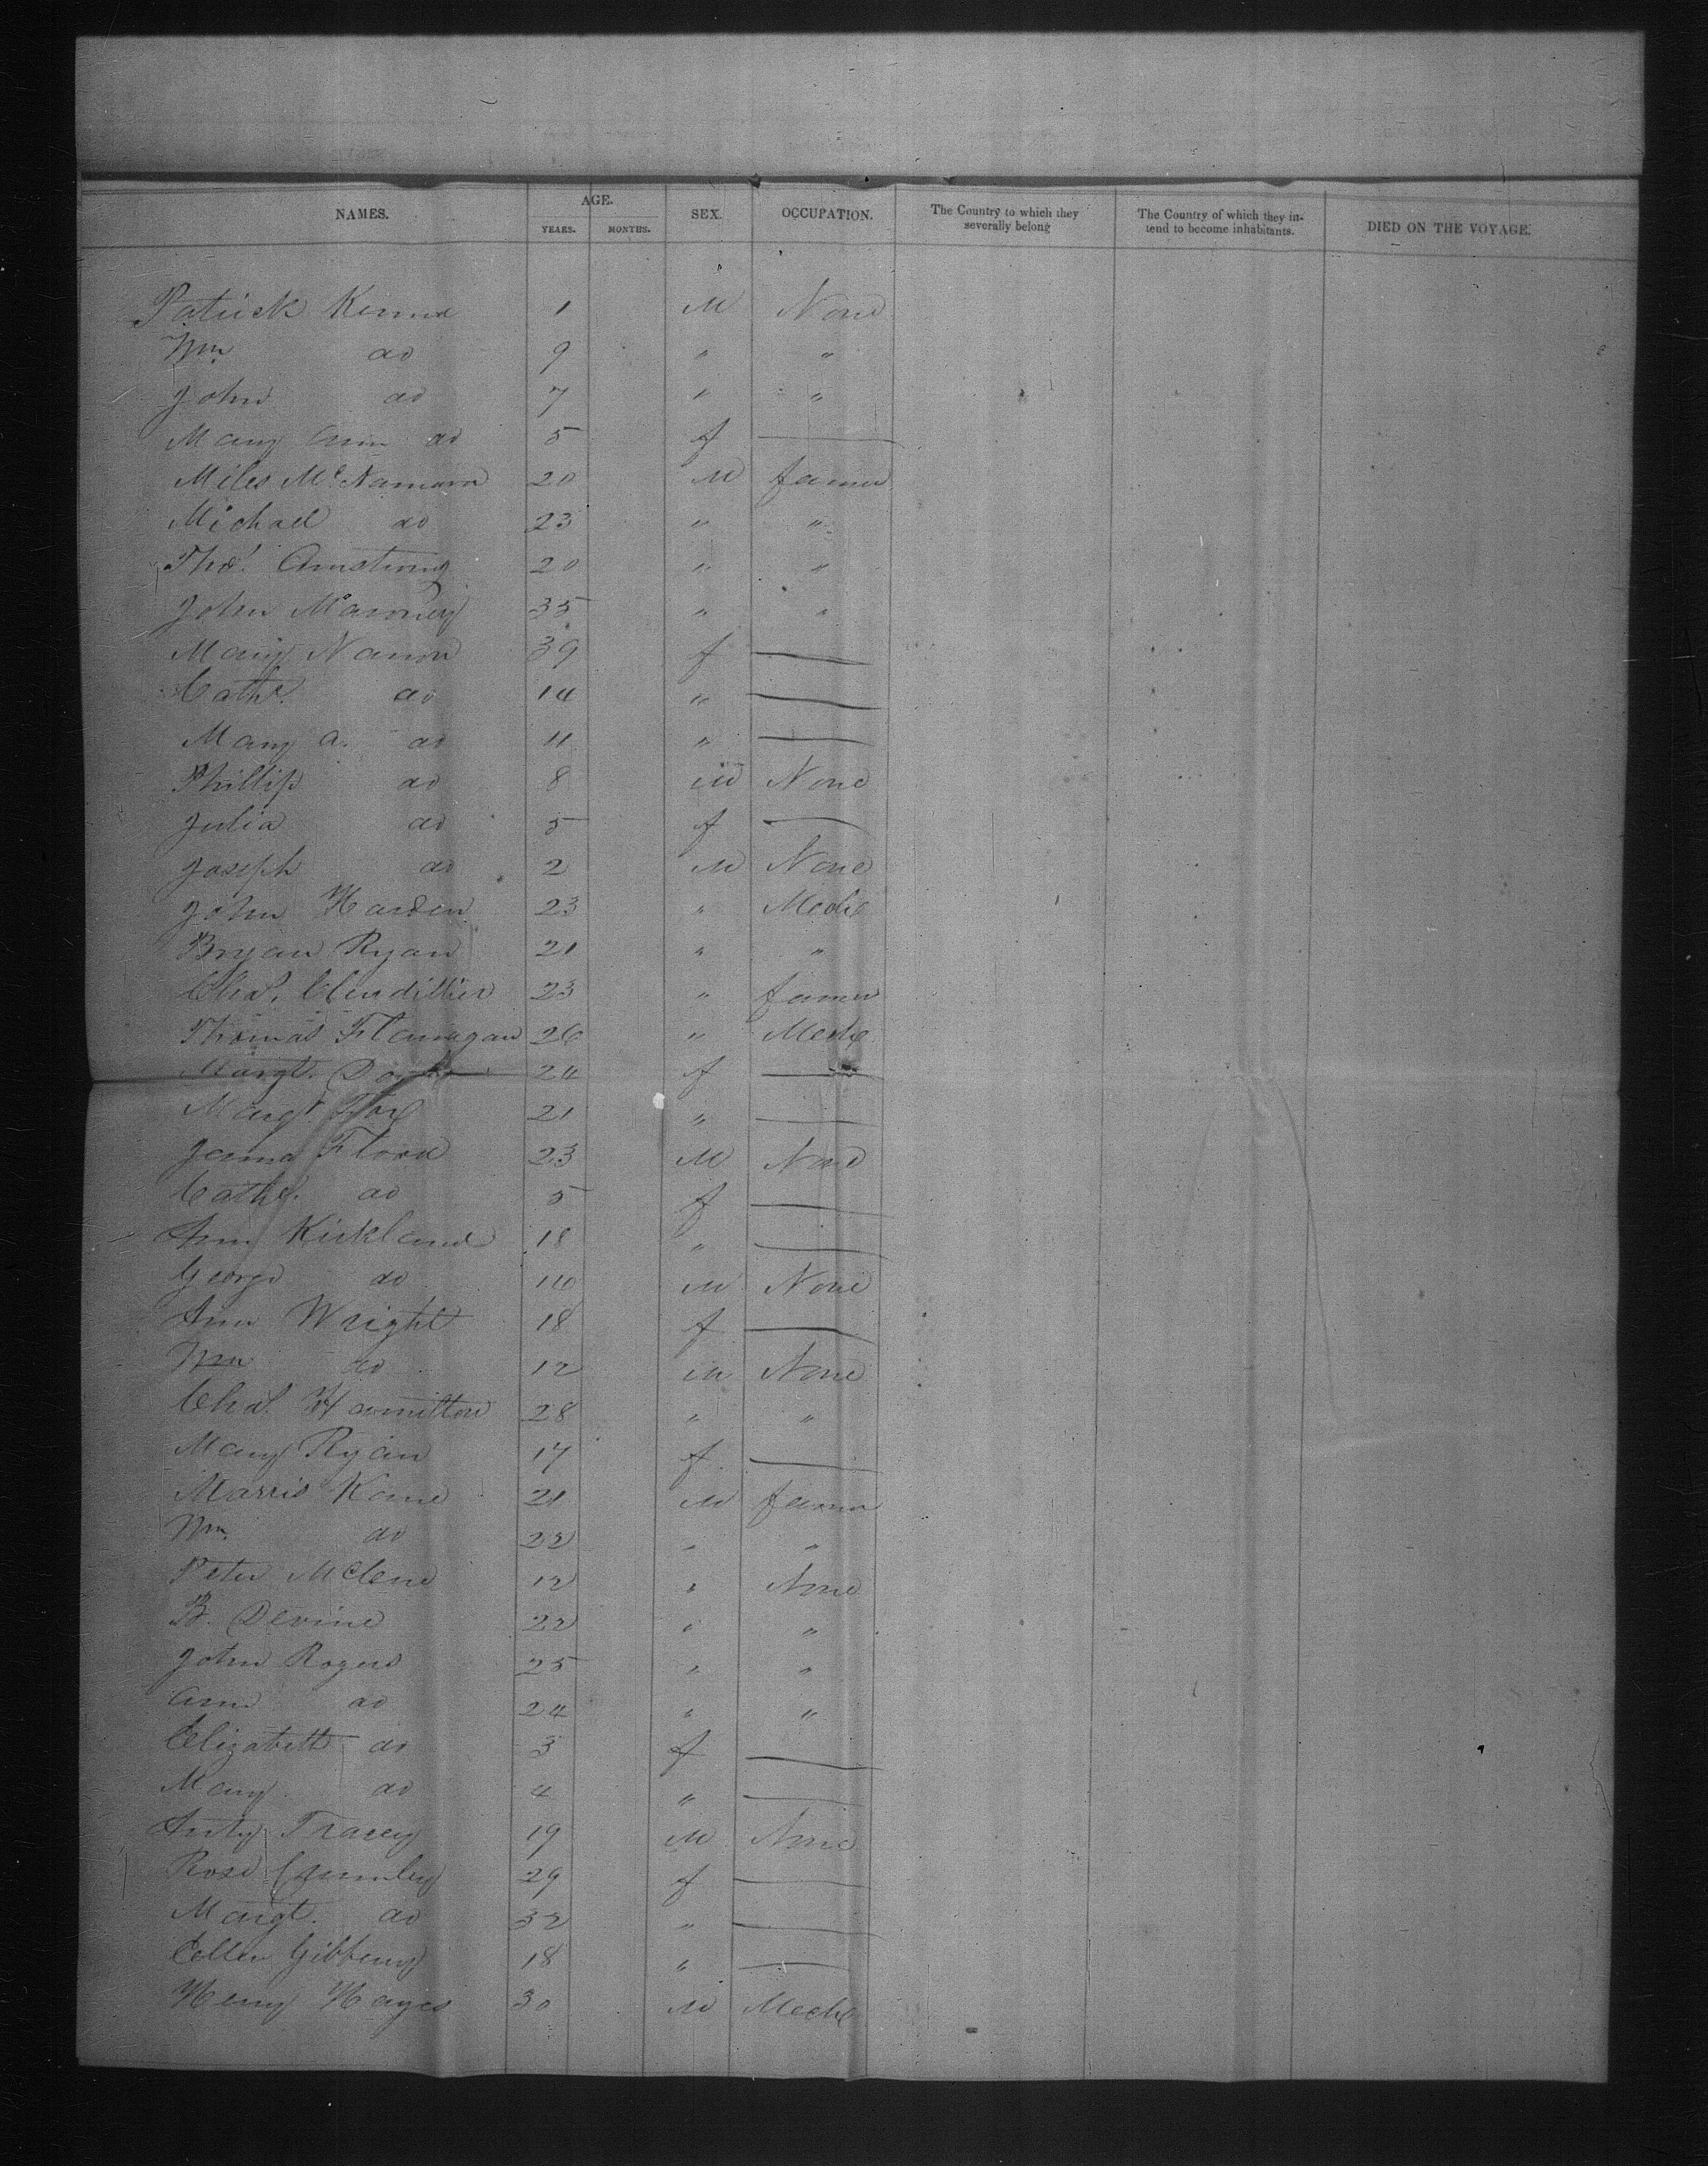 NAMES. AGE. YEARS. MONTHS. SEX. OCCUPATION. The Country to which they severally belong The Country of which they intend to become inhabitants. DIED ON THE VOYAGE.
Patrick 1 M None
Wm do 9 " "
John do 7 " "
Mary Ann do 5 f —
Miles McNamara 20 M farmer
Michael do 23 " "
Thos. Armstrong 20 " "
John Maroney 35 " "
Mary 39 f —
Cathe. do 14 " —
Mary A. do 11 " —
Phillip do 8 M None
Julia do 5 f —
Joseph do 2 M None
John Harden 23 " Meche
Bryan Ryan 21 " "
Chas. 23 " farmer
Thomas Flanagan 26 " Meche
Margt. 24 f —
Margt. Fox 21 " —
Flood 23 M None
Cathe. do 5 f —
Ann Kirkland 18 " —
George do 10 M None
Ann Wright 18 f —
Wm do 12 M None
Chas. Hamilton 28 " "
Mary Ryan 17 f —
Marris Kane 21 M farmer
Wm. do 22 " "
Peter 12 " None
B. Devine 22 " "
John Rogers 25 " "
Ann do 24 " "
Elizabeth do 3 f —
Mary do 4 " —
Anty Tracey 19 M None
Rose 29 f —
Margt. do 32 " —
Ellen 18 " —
Henry Hayes 30 M Meche